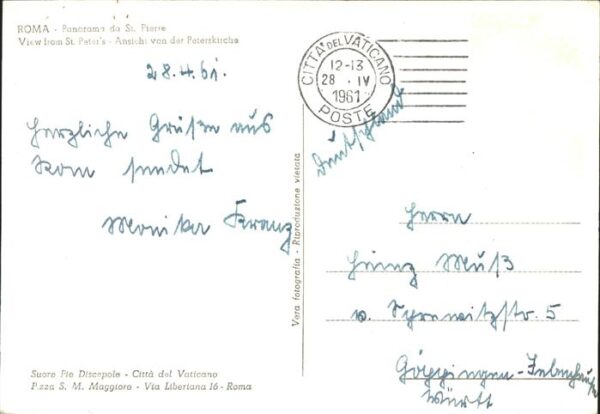 ROMA - Panorama da St. Pierre
View from St. Peter's - Ansicht von der Peterskirche
28.4.61.
Herzliche Grüße aus
Rom sendet
Monika Kranz
CITTA' DEL VATICANO
12-13
28 . IV
1961
POSTE
Deutschland
Herrn
Heinz Muß
v. Steinitzstr. 5
Göppingen-Jebenhausen
Württ
Vera fotografia - Riproduzione vietata
Suore Pie Discepole - Città del Vaticano
P.zza S. M. Maggiore - Via Liberiana 16 - Roma